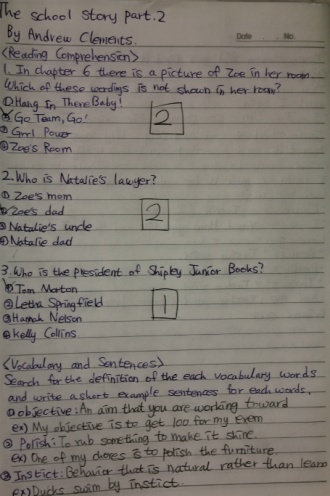 The school story part.2
By Andrew Clements.
Date . . No.
<Reading Comprehension>
1. In chapter 6 there is a picture of Zoe in her room.
Which of these wordings is not shown in her room?
① Hang In There Baby!
② Go Team, Go!
2
③ Grrl Power
④ Zoe's Room
2. Who is Natalie's lawyer?
① Zoe's mom
② Zoe's dad
2
③ Natalie's uncle
④ Natalie dad
3. Who is the president of Shipley Junior Books?
① Tom Morton
② Letha Springfield
1
③ Hannah Nelson
④ Kelly Collins
<Vocabulary and Sentences>
Search for the definition of the each vocabulary words
and write a short example sentences for each words.
① objective: An aim that you are working toward
ex) My objective is to get 100 for my exem
② Polish: To rub something to make it shine.
ex) One of my chores is to polish the furniture.
③ Instict: Behavior that is natural rather than learn
ex) Ducks swim by instict